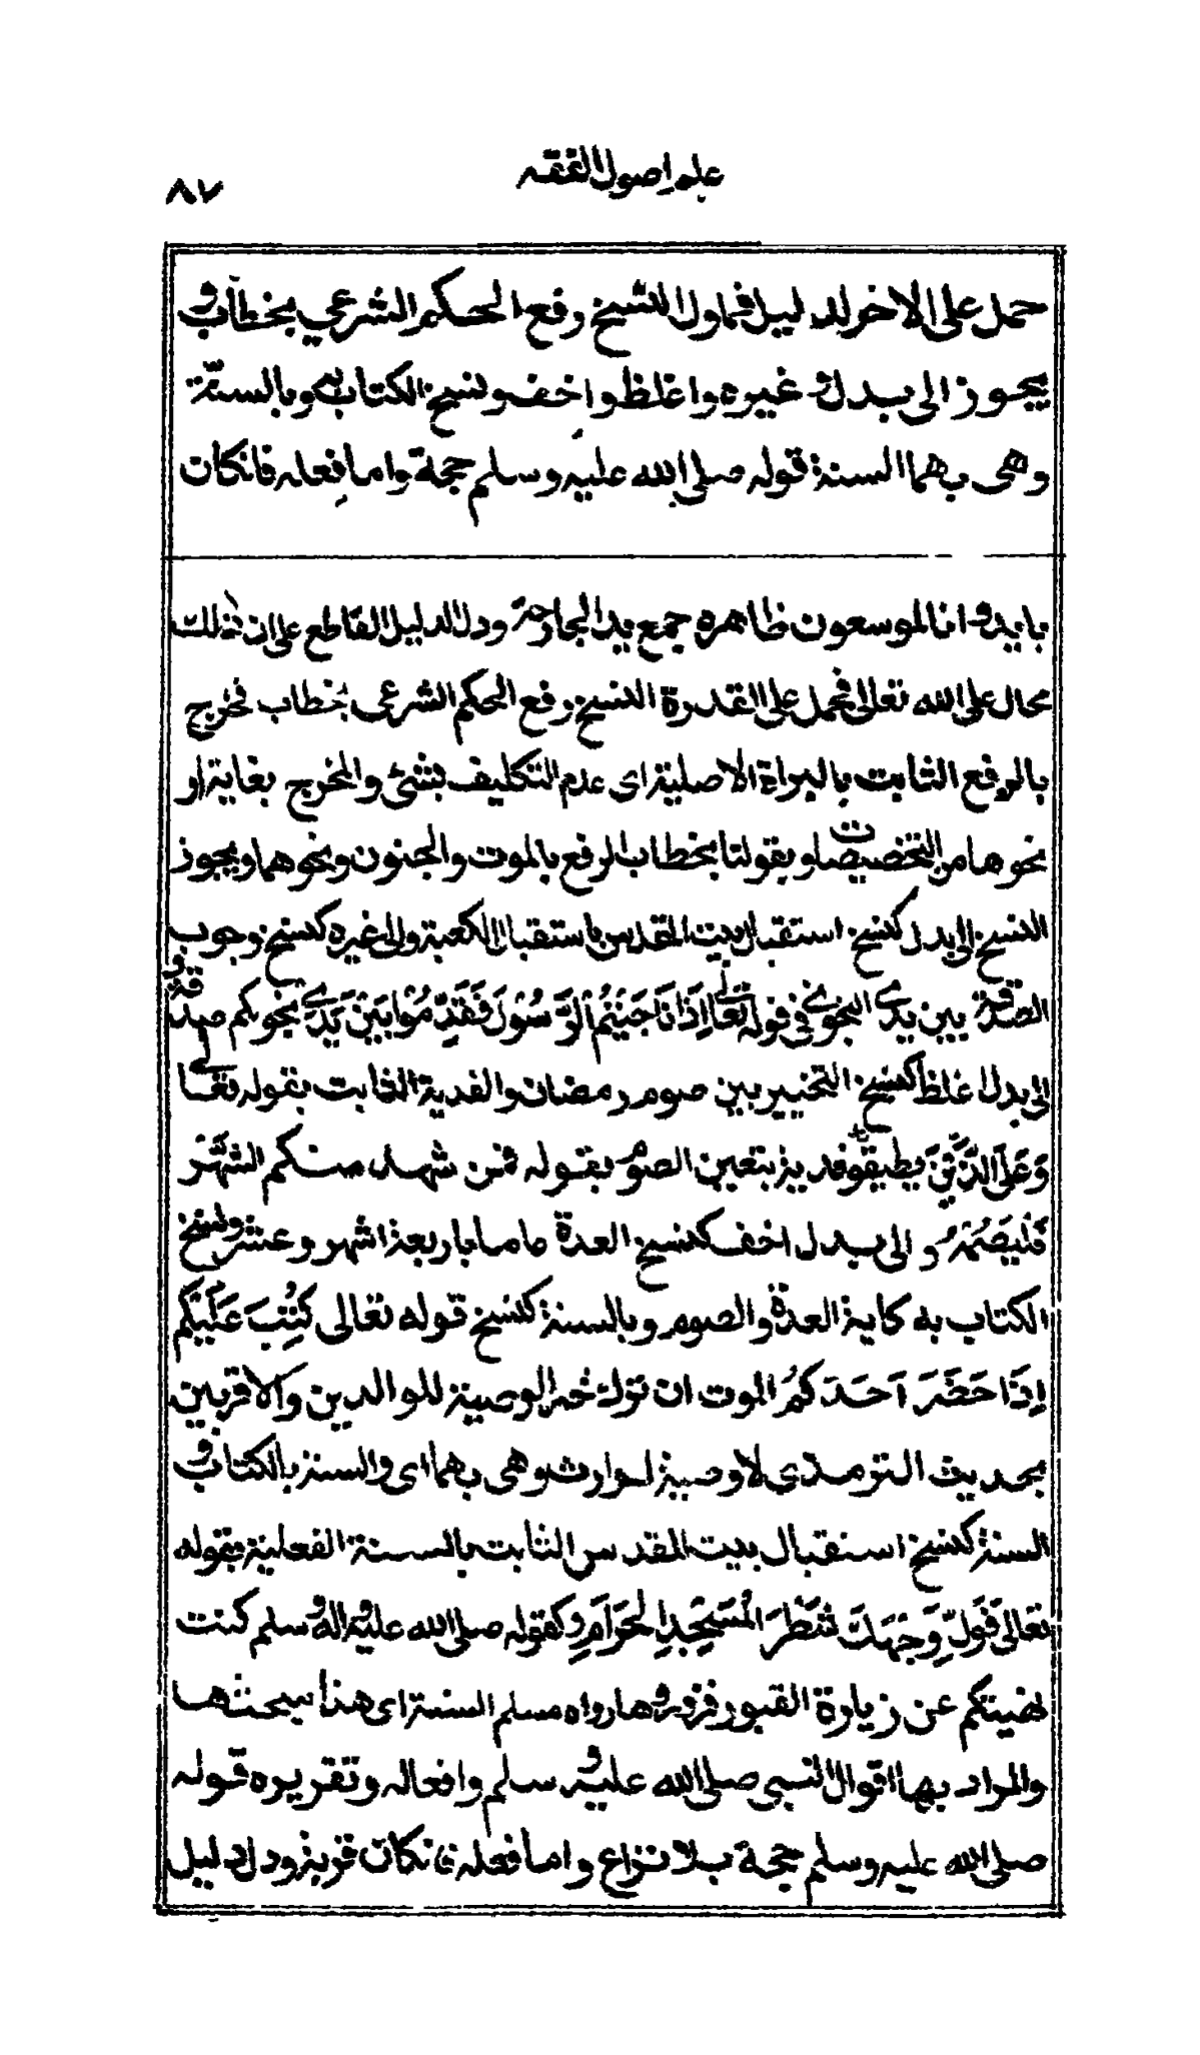 علم اصول الفقه
٨٧
حمل على الاخر لدليل فماول النسخ رفع الحكم الشرعي بخطاب و
يجوز الى بدل و غيره واغلظ واخف ونسخ الكتاب به وبالسنة
وهى بهما السنة قوله صلى الله عليه وسلم حجة واما فعله فانكان
بايد وانا لموسعون ظاهره جمع يد الجارحة ودل الدليل القاطع على ان ذلك
محال على الله تعالى فحمل على القدرة النسخ رفع الحكم الشرعي بخطاب فخرج
بالرفع الثابت بالبراة الاصلية اى عدم التكليف بشئ والمخرج بغاية او
نحوها من التخصيصات او بقولنا بخطاب الرفع بالموت والجنون ونحوهما ويجوز
النسخ الى بدل كنسخ استقبال بيت المقدس باستقبال الكعبة والى غيره كنسخ وجوب
الصدقة بين يدى النجوى في قوله تعالى اِذَا نَاجَيْتُمُ الرَّسُوْلَ فَقَدِّمُوْا بَيْنَ يَدَىْ نجوىكم صدقة و
الى بدل اغلظ كنسخ التخيير بين صوم رمضان والفدية الثابت بقوله تعالى
وَعَلَى الَّذِيْنَ يطيقونه فدية بتعين الصوم بقوله فمن شهد منكم الشَّهْرَ
فَلْيَصُمْهُ و الى بدل اخف كنسخ العدة عاما باربعة اشهر وعشر ونسخ
الكتاب به كاية العدة والصوم وبالسنة كنسخ قوله تعالى كُتِبَ عَلَيْكُم
اِذَا حَضَرَ اَحَدَكُمُ الموت ان ترك خيرا الوصية للوالدين والاقربين
بحديث الترمذي لا وصية لوارث وهى بهما اى والسنة بالكتاب و
السنة كنسخ استقبال بيت المقدس الثابت بالسنة الفعلية بقوله
تعالى فَوَلِّ وَجْهَكَ شَطْرَ الْمَسْجِدِ الْحَرَامِ وكقوله صلى الله عليه واله وسلم كنت
نهيتكم عن زيارة القبور فزوروها رواه مسلم السنة اى هذا مبحثها
والمراد بها اقوال النبى صلى الله عليه و سلم وافعاله وتقريره قوله
صلى الله عليه وسلم حجة بلا نزاع واما فعله فانكان قربة ودل دليل